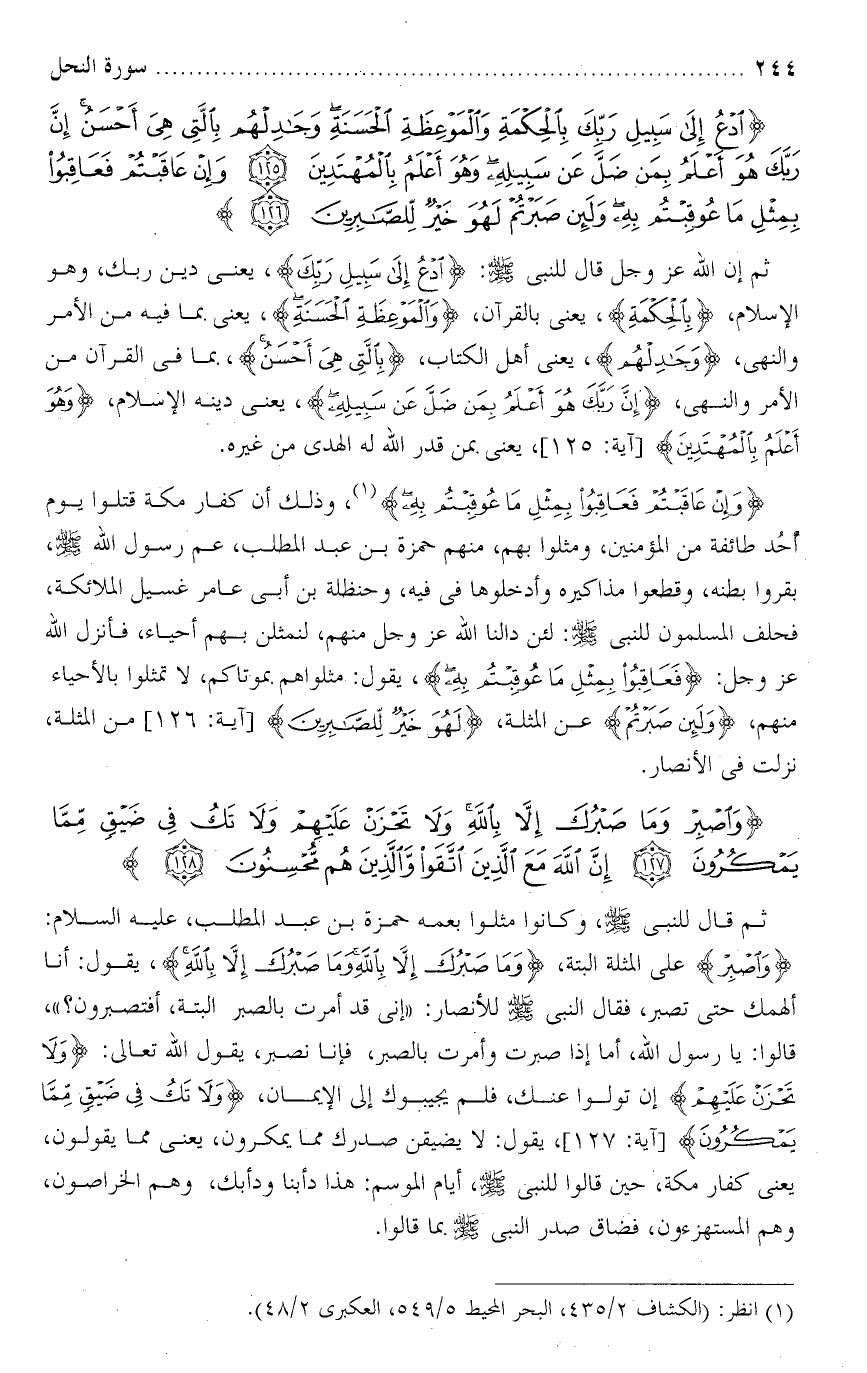 ٢٤٤ ........................................................................ سورة النحل
﴿ ٱدْعُ إِلَىٰ سَبِيلِ رَبِّكَ بِٱلْحِكْمَةِ وَٱلْمَوْعِظَةِ ٱلْحَسَنَةِ ۖ وَجَـٰدِلْهُم بِٱلَّتِى هِىَ أَحْسَنُ ۚ إِنَّ
رَبَّكَ هُوَ أَعْلَمُ بِمَن ضَلَّ عَن سَبِيلِهِۦ ۖ وَهُوَ أَعْلَمُ بِٱلْمُهْتَدِينَ ١٢٥ وَإِنْ عَاقَبْتُمْ فَعَاقِبُوا۟
بِمِثْلِ مَا عُوقِبْتُم بِهِۦ ۖ وَلَئِن صَبَرْتُمْ لَهُوَ خَيْرٌ لِّلصَّـٰبِرِينَ ١٢٦ ﴾
ثم إن الله عز وجل قال للنبى ﷺ: ﴿ٱدْعُ إِلَىٰ سَبِيلِ رَبِّكَ﴾، يعنى دين ربك، وهو
الإسلام، ﴿بِٱلْحِكْمَةِ﴾، يعنى بالقرآن، ﴿وَٱلْمَوْعِظَةِ ٱلْحَسَنَةِ ۖ﴾، يعنى بما فيه من الأمر
والنهى، ﴿وَجَـٰدِلْهُم﴾، يعنى أهل الكتاب، ﴿بِٱلَّتِى هِىَ أَحْسَنُ ۚ﴾، بما فى القرآن من
الأمر والنهى، ﴿إِنَّ رَبَّكَ هُوَ أَعْلَمُ بِمَن ضَلَّ عَن سَبِيلِهِۦ ۖ﴾، يعنى دينه الإسلام، ﴿وَهُوَ
أَعْلَمُ بِٱلْمُهْتَدِينَ﴾ [آية: ١٢٥]، يعنى بمن قدر الله له الهدى من غيره.
﴿وَإِنْ عَاقَبْتُمْ فَعَاقِبُوا۟ بِمِثْلِ مَا عُوقِبْتُم بِهِۦ ۖ﴾(١)، وذلك أن كفار مكة قتلوا يوم
أُحُد طائفة من المؤمنين، ومثلوا بهم، منهم حمزة بن عبد المطلب، عم رسول الله ﷺ،
بقروا بطنه، وقطعوا مذاكيره وأدخلوها فى فيه، وحنظلة بن أبى عامر غسيل الملائكة،
فحلف المسلمون للنبى ﷺ: لئن دالنا الله عز وجل منهم، لنمثلن بهم أحياء، فأنزل الله
عز وجل: ﴿فَعَاقِبُوا۟ بِمِثْلِ مَا عُوقِبْتُم بِهِۦ ۖ﴾، يقول: مثلواهم بموتاكم، لا تمثلوا بالأحياء
منهم، ﴿وَلَئِن صَبَرْتُمْ﴾ عن المثلة، ﴿لَهُوَ خَيْرٌ لِّلصَّـٰبِرِينَ﴾ [آية: ١٢٦] من المثلة،
نزلت فى الأنصار.
﴿ وَٱصْبِرْ وَمَا صَبْرُكَ إِلَّا بِٱللَّهِ ۚ وَلَا تَحْزَنْ عَلَيْهِمْ وَلَا تَكُ فِى ضَيْقٍ مِّمَّا
يَمْكُرُونَ ١٢٧ إِنَّ ٱللَّهَ مَعَ ٱلَّذِينَ ٱتَّقَوا۟ وَّٱلَّذِينَ هُم مُّحْسِنُونَ ١٢٨ ﴾
ثم قال للنبى ﷺ، وكانوا مثلوا بعمه حمزة بن عبد المطلب، عليه السلام:
﴿وَٱصْبِرْ﴾ على المثلة البتة، ﴿وَمَا صَبْرُكَ إِلَّا بِٱللَّهِ ۚوَمَا صَبْرُكَ إِلَّا بِٱللَّهِ ۚ﴾، يقول: أنا
ألهمك حتى تصبر، فقال النبى ﷺ للأنصار: «إنى قد أمرت بالصبر البتة، أفتصبرون؟»،
قالوا: يا رسول الله، أما إذا صبرت وأمرت بالصبر، فإنا نصبر، يقول الله تعالى: ﴿وَلَا
تَحْزَنْ عَلَيْهِمْ﴾ إن تولوا عنك، فلم يجيبوك إلى الإيمان، ﴿وَلَا تَكُ فِى ضَيْقٍ مِّمَّا
يَمْكُرُونَ﴾ [آية: ١٢٧]، يقول: لا يضيقن صدرك مما يمكرون، يعنى مما يقولون،
يعنى كفار مكة، حين قالوا للنبى ﷺ، أيام الموسم: هذا دأبنا ودأبك، وهم الخراصون،
وهم المستهزءون، فضاق صدر النبى ﷺ بما قالوا.
(١) انظر: (الكشاف ٤٣٥/٢، البحر المحيط ٥٤٩/٥، العكبرى ٤٨/٢).